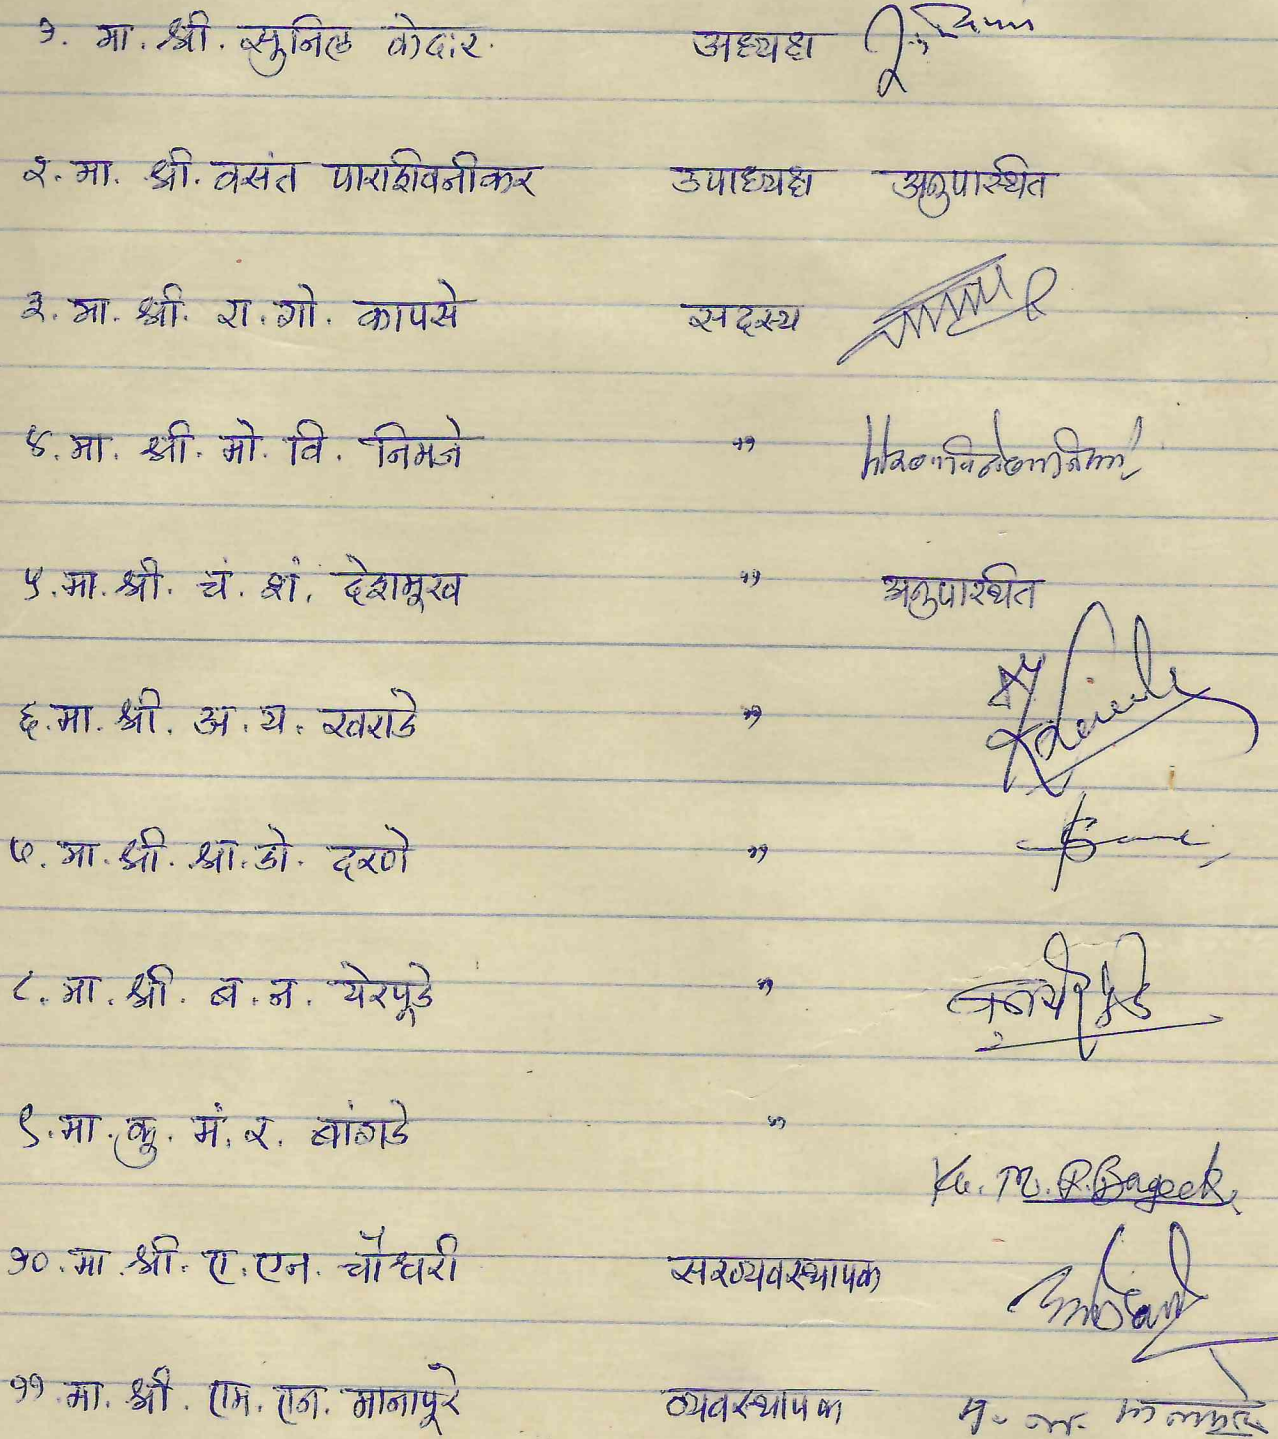 १. मा. श्री. सुनिल केदार. अध्यक्ष
२. मा. श्री. वसंत पाराशिवनीकर उपाध्यक्ष अनुपास्थित
३. मा. श्री. रा. गो. कापसे सदस्य
४. मा. श्री. मो. वि. निमजे "
५. मा. श्री. चं. शं. देशमूख " अनुपास्थित
६. मा. श्री. अ. य. खराडे "
७. मा. श्री. श्रा. डो. दरणे "
८. मा. श्री. ब. न. येरपूडे "
९. मा. कु. मं. र. बांगडे "
Ku. M. R.
१०. मा. श्री. ए. एन. चौधरी सरव्यवस्थापक
११. मा. श्री. एम. एन. मानापूरे व्यवस्थापक